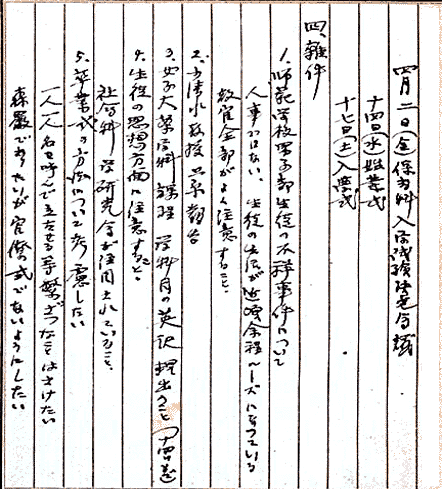 四月二日(金)保育科入学試験決定会議
十四日(水)始業式
十七日(土)入学式
四、雑件
1. 師範学校男子部生徒の不祥事件について
人事ではない、生徒の生活が近頃余程ルーズになっている
教官全部がよく注意すること、
2. 清水教授
3. 女子大学学科課程 学科目の英訳 提出のこと
4. 生徒の思想方面に注意すること、
社会科学研究会が活用されていること、
5. 卒業式の方法について考慮したい
一人一人名を呼んで立たせる等繁ざつなことはさけたい
森厳でありたいが官僚の式でないようにしたい